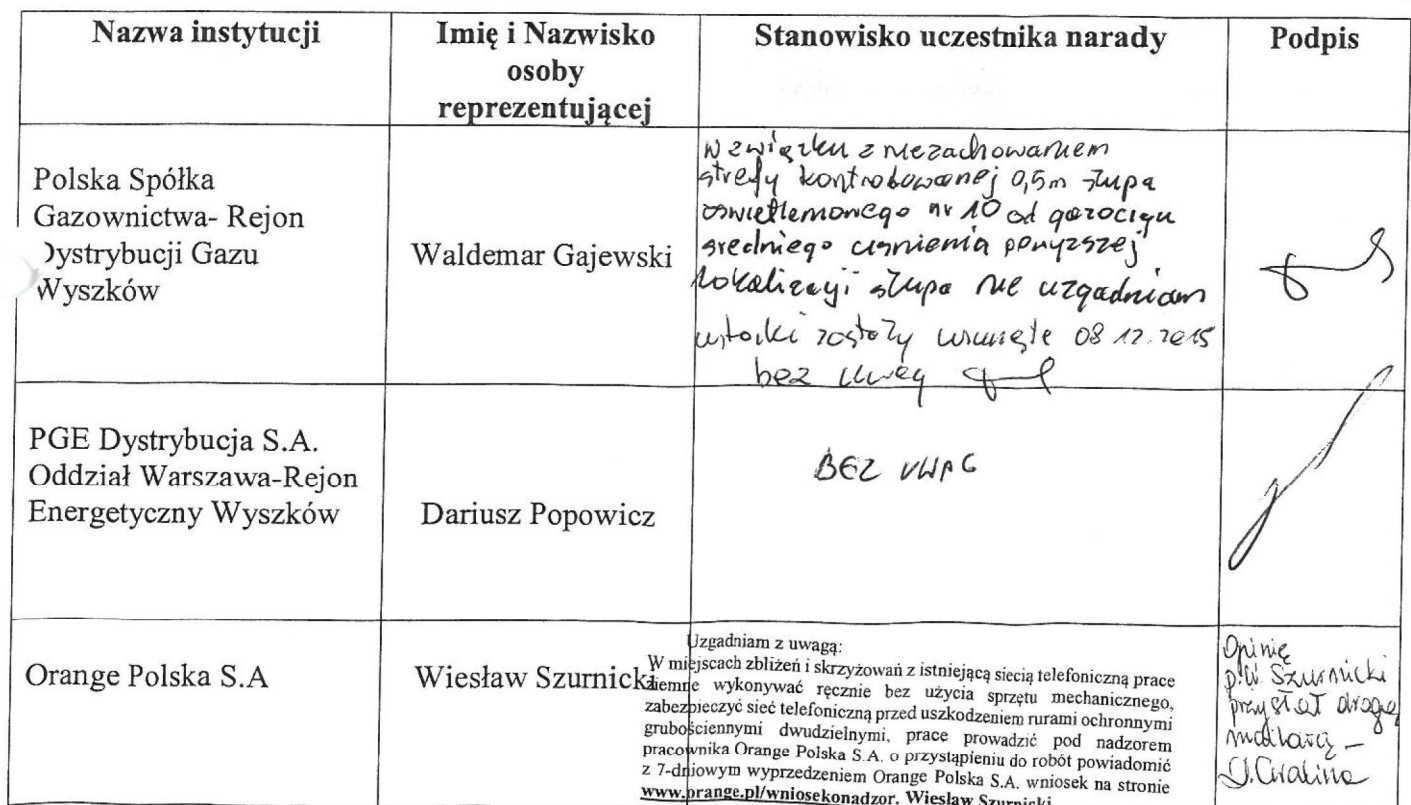 Nazwa instytucji
Imię i Nazwisko
osoby
reprezentującej
Stanowisko uczestnika narady
Podpis
Polska Spółka
Gazownictwa- Rejon
Dystrybucji Gazu
Wyszków
Waldemar Gajewski
W związku z niezachowaniem
strefy kontrolowanej 0,5m słupa
oświetleniowego nr 10 od gazociągu
średniego ciśnienia powyższej
lokalizacji słupa nie uzgadniam
usterki zostały usunięte 08.12.2015
bez uwag
PGE Dystrybucja S.A.
Oddział Warszawa-Rejon
Energetyczny Wyszków
Dariusz Popowicz
BEZ UWAG
Orange Polska S.A
Wiesław Szurnicki
Uzgadniam z uwagą:
W miejscach zbliżeń i skrzyżowań z istniejącą siecią telefoniczną prace
ziemne wykonywać ręcznie bez użycia sprzętu mechanicznego,
zabezpieczyć sieć telefoniczną przed uszkodzeniem rurami ochronnymi
grubościennymi dwudzielnymi, prace prowadzić pod nadzorem
pracownika Orange Polska S.A. o przystąpieniu do robót powiadomić
z 7-dniowym wyprzedzeniem Orange Polska S.A. wniosek na stronie
www.orange.pl/wniosekonadzor. Wiesław Szurnicki
Opinię
p. W. Szurnicki
przysłał drogą
mailową –